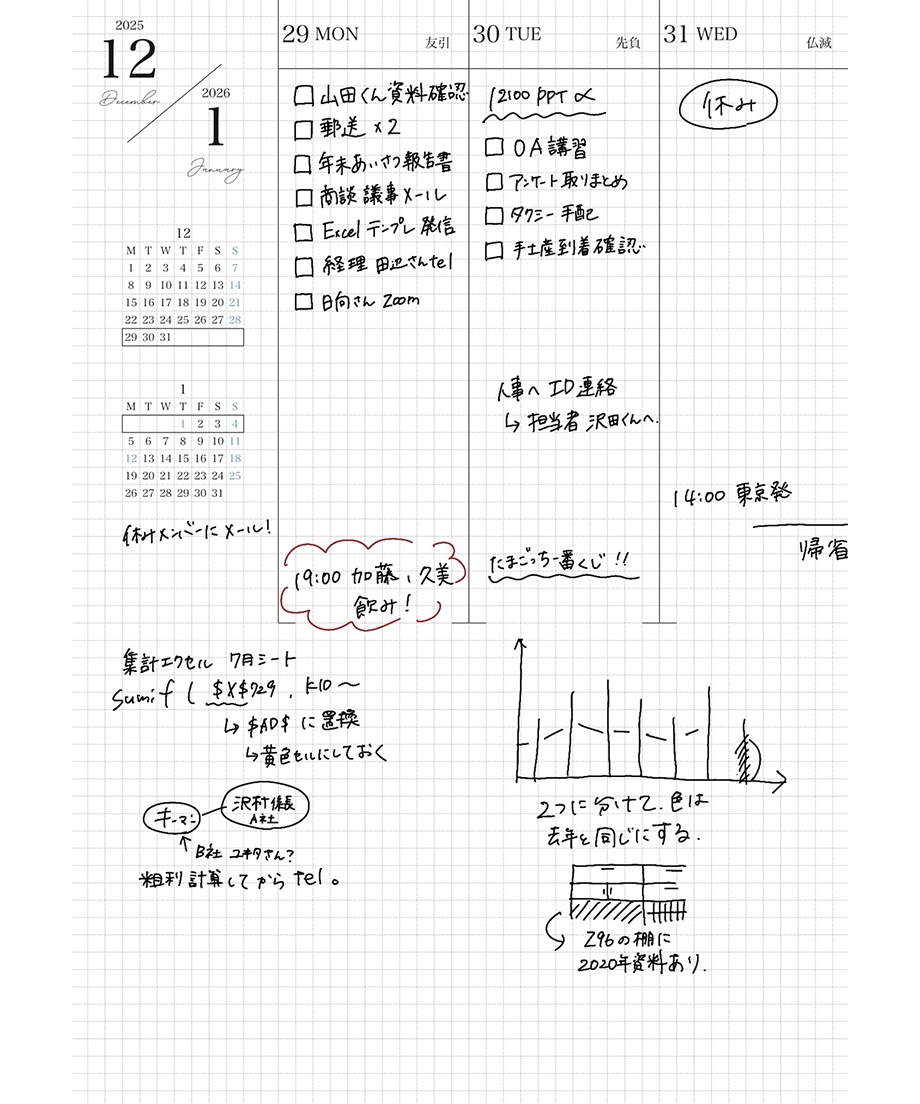 2025
12
December
2026
1
January
12
M T W T F S S
1 2 3 4 5 6 7
8 9 10 11 12 13 14
15 16 17 18 19 20 21
22 23 24 25 26 27 28
29 30 31
1
M T W T F S S
1 2 3 4
5 6 7 8 9 10 11
12 13 14 15 16 17 18
19 20 21 22 23 24 25
26 27 28 29 30 31
休みメンバーにメール!
29 MON 友引
山田くん資料確認
郵送 x2
年末あいさつ報告書
商談議事メール
Excel テンプレ発信
経理 田辺さんtel
日向さん Zoom
19:00 加藤、久美
飲み!
30 TUE 先負
PPT
OA講習
アンケート取りまとめ
タクシー手配
手土産到着確認
人事へ ID連絡
↳ 担当者 沢田くんへ.
たまごっち一番くじ!!
31 WED 仏滅
休み
14:00 東京発
帰省
集計エクセル 7月シート
sumif ( $X$729, K10〜
↳ $AD$ に置換
↳ 黄色セルにしておく
キーマン
沢村係長
A社
B社 ユキタさん?
粗利計算してから tel。
2つに分けて.色は
去年と同じにする.
Z96の棚に
2020年資料あり.